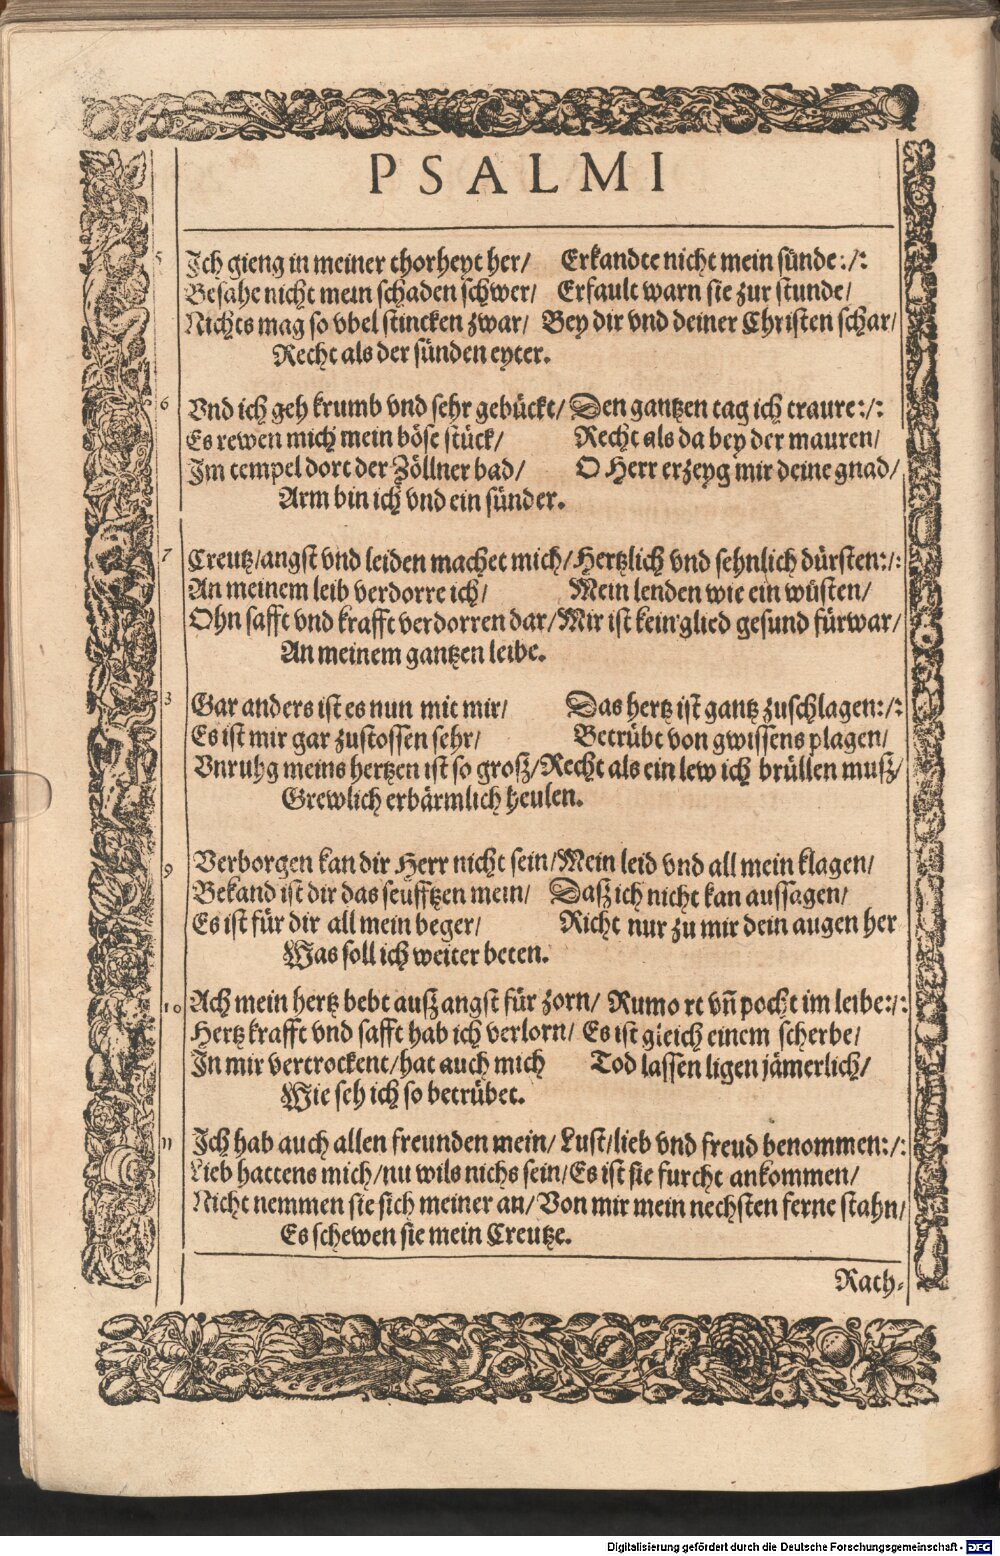 PSALMI
5 Ich gieng in meiner thorheyt her/ Erkandte nicht mein sünde:/:
Besahe nicht mein schaden schwer/ Erfault warn sie zur stunde/
Nichts mag so vbel stincken zwar/ Bey dir vnd deiner Christen schar/
Recht als der sünden eyter.
6 Vnd ich geh krumb vnd sehr gebückt/ Den gantzen tag ich traure:/:
Es rewen mich mein böse stück/ Recht als da bey der mauren/
Im tempel dort der Zöllner bad/ O Herr erzeyg mir deine gnad/
Arm bin ich vnd ein sünder.
7 Creutz/angst vnd leiden machet mich/ Hertzlich vnd sehnlich dürsten:/:
An meinem leib verdorre ich/ Mein lenden wie ein wüsten/
Ohn safft vnd krafft verdorren dar/ Mir ist kein glied gesund fürwar/
An meinem gantzen leibe.
3 Gar anders ist es nun mit mir/ Das hertz ist gantz zuschlagen:/:
Es ist mir gar zustossen sehr/ Betrübt von gwissens plagen/
Vnruhg meins hertzen ist so groß/ Recht als ein lew ich brüllen muß/
Grewlich erbärmlich heulen.
9 Verborgen kan dir Herr nicht sein/ Mein leid vnd all mein klagen/
Bekand ist dir das seufftzen mein/ Daß ich nicht kan aussagen/
Es ist für dir all mein beger/ Richt nur zu mir dein augen her
Was soll ich weiter beten.
10 Ach mein hertz bebt auß angst für zorn/ Rumo rt vñ pocht im leibe:/:
Hertz krafft vnd safft hab ich verlorn/ Es ist gleich einem scherbe/
In mir vertrockent/hat auch mich Tod lassen ligen jämerlich/
Wie seh ich so betrübet.
11 Ich hab auch allen freunden mein/ Lust/lieb vnd freud benommen:/:
Lieb hattens mich/nu wils nichs sein/ Es ist sie furcht ankommen/
Nicht nemmen sie sich meiner an/ Von mir mein nechsten ferne stahn/
Es schewen sie mein Creutze.
Rach-
Digitalisierung gefördert durch die Deutsche Forschungsgemeinschaft - DFG